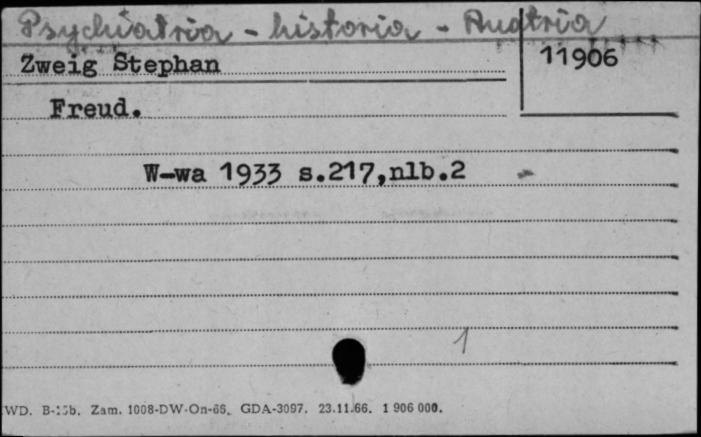 Psychiatria - historia - Austria
Zweig Stephan
11906
Freud.
W-wa 1933 s.217,nlb.2
1
WD. B-15b. Zam. 1008-DW-On-66. GDA-3097. 23.11.66. 1 906 000.